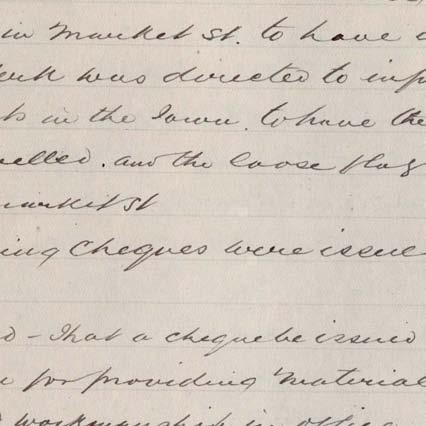 in Market St. to have
was directed to
in the Town. to have the
and the loose flag
Market St
cheques were issue
- That a cheque be issued
for providing Material
workmanship in office